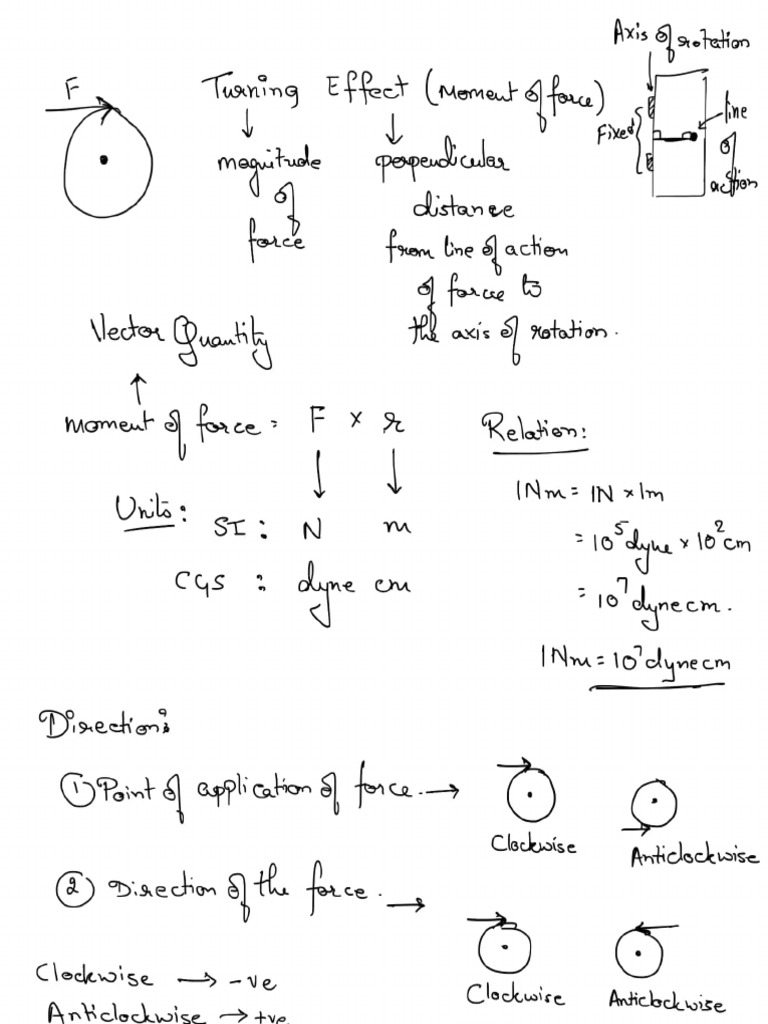 F
Turning Effect (Moment of force)
magnitude of force
perpendicular distance from line of action of force to the axis of rotation.
Axis of rotation
Fixed
line of action
Vector Quantity
moment of force = F × r
Units:
SI : N m
CGS : dyne cm
Relation:
1Nm = 1N × 1m
= 10⁵ dyne × 10² cm
= 10⁷ dyne cm.
1Nm = 10⁷ dyne cm
Direction:
① Point of application of force. →
Clockwise
Anticlockwise
② Direction of the force. →
Clockwise
Anticlockwise
Clockwise → -ve
Anticlockwise → +ve